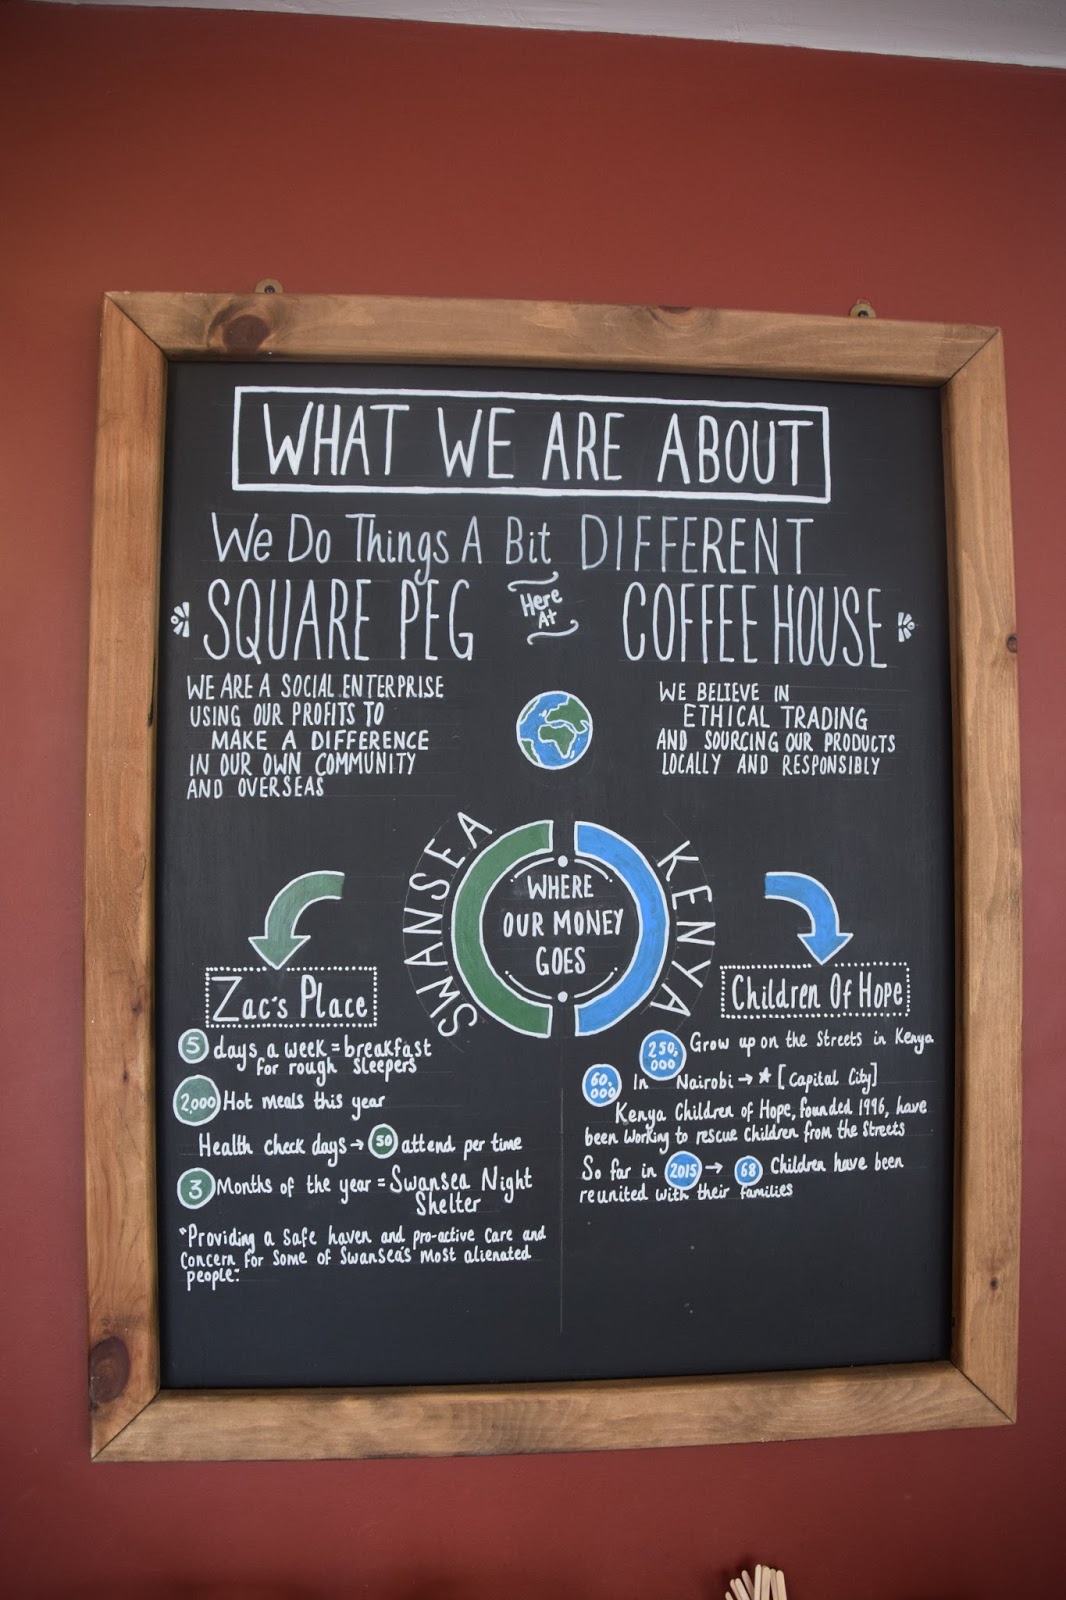 WHAT WE ARE ABOUT
We Do Things A Bit DIFFERENT
Here
At
SQUARE PEG COFFEE HOUSE
WE ARE A SOCIAL ENTERPRISE
USING OUR PROFITS TO
MAKE A DIFFERENCE
IN OUR OWN COMMUNITY
AND OVERSEAS
WE BELIEVE IN
ETHICAL TRADING
AND SOURCING OUR PRODUCTS
LOCALLY AND RESPONSIBLY
SWANSEA
WHERE
OUR MONEY
GOES
KENYA
Zac's Place
5 days a week = breakfast
for rough sleepers
2,000 Hot meals this year
Health check days → 50 attend per time
3 Months of the year = Swansea Night
Shelter
"Providing a safe haven and pro-active care and
concern for some of Swansea's most alienated
people."
Children Of Hope
250,
000 Grow up on the streets in Kenya
60,
000 In Nairobi → * [Capital City]
Kenya Children of Hope, founded 1996, have
been working to rescue children from the streets
So far in 2015 → 68 Children have been
reunited with their families